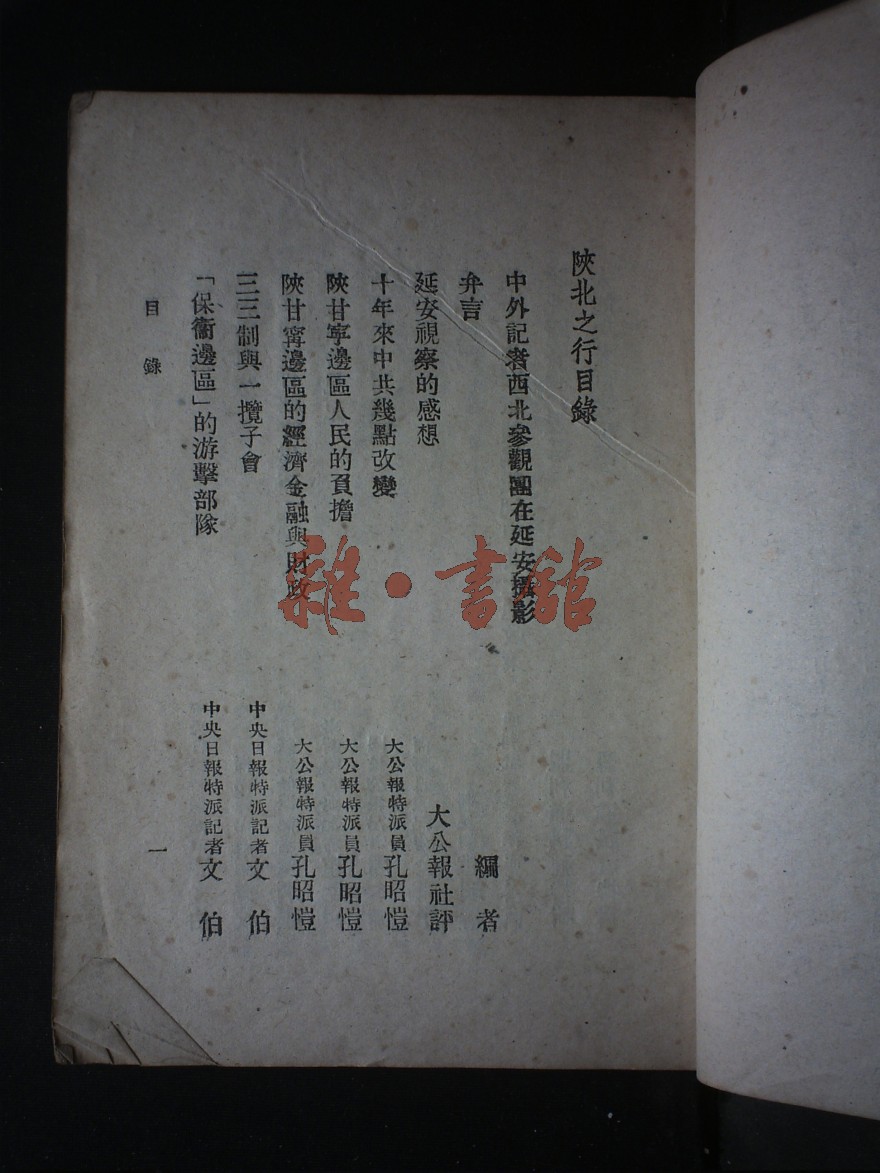 陝北之行目錄
中外記者西北參觀團在延安攝影
弁言 編者
延安視察的感想 大公報社評
十年來中共幾點改變 大公報特派員孔昭愷
陝甘寧邊區人民的負擔 大公報特派員孔昭愷
陝甘寧邊區的經濟金融與財政 大公報特派員孔昭愷
三三制與一攬子會 中央日報特派記者文伯
「保衞邊區」的游擊部隊 中央日報特派記者文伯
目錄 一
雜·書館